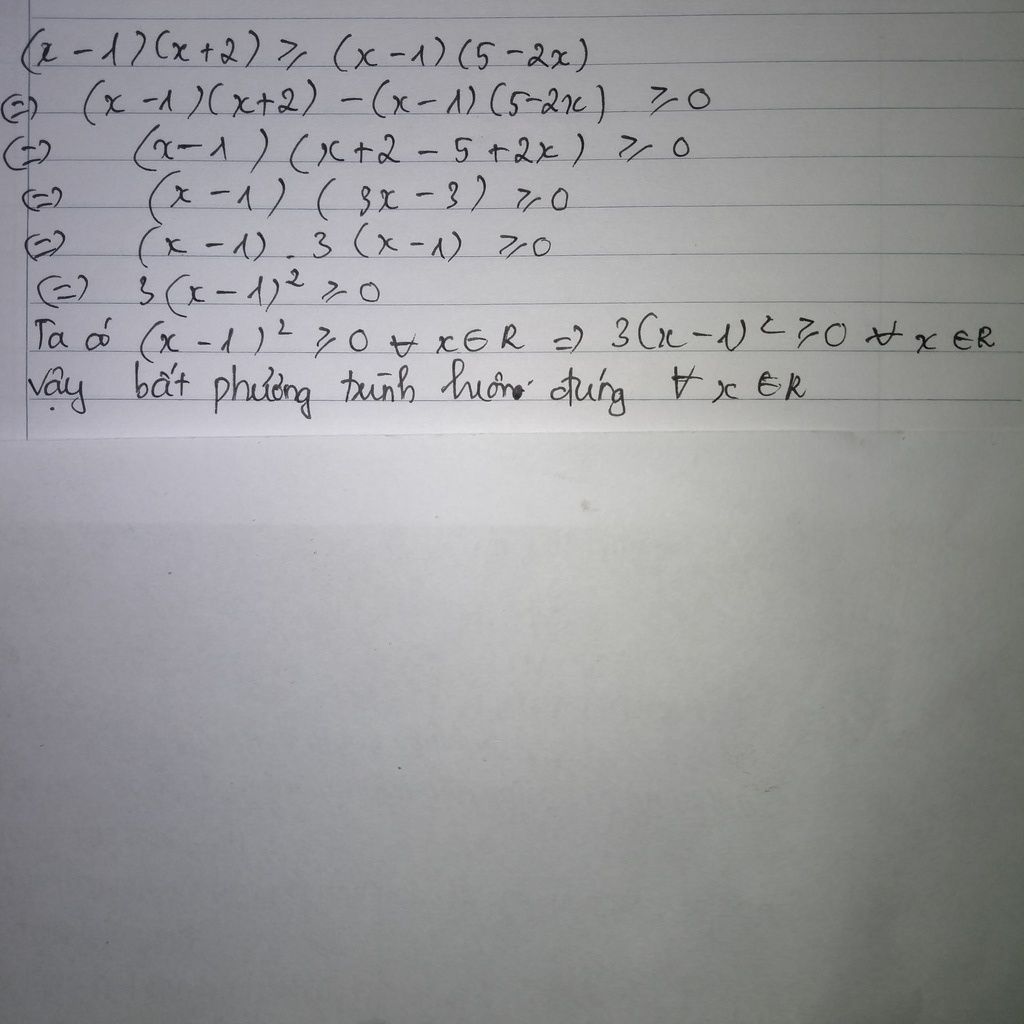 (x - 1)(x + 2) ⩾ (x - 1)(5 - 2x)
(=) (x - 1)(x + 2) - (x - 1)(5 - 2x) ⩾ 0
(=) (x - 1)(x + 2 - 5 + 2x) ⩾ 0
(=) (x - 1)(3x - 3) ⩾ 0
(=) (x - 1) . 3(x - 1) ⩾ 0
(=) 3(x - 1)² ⩾ 0
Ta có (x - 1)² ⩾ 0 ∀ x ∈ R => 3(x - 1)² ⩾ 0 ∀ x ∈ R
Vậy bất phương trình luôn đúng ∀ x ∈ R